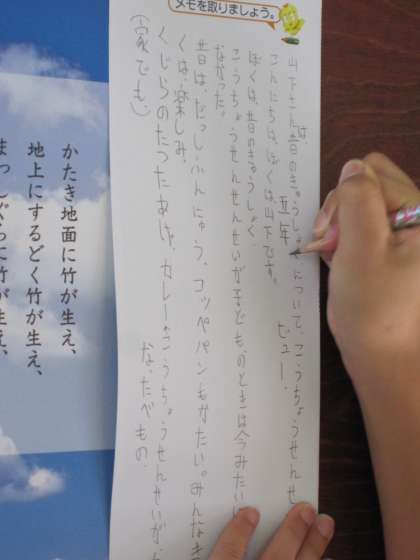 メモを取りましょう。
山下さんは昔のきゅうしょくについて、こうちょうせんせ
ビュー.
五年
こんにちは、ぼくは山下です。
ぼくは、昔のきゅうしょく.
こうちょうせんせんせいが子どものときは今みたいに
なかった。
昔は、だっしふんにゅう、コッペパンもかたい。みんなき
くは、楽しみ、
くじらのたつたあげ、カレー←こうちょうせんせいが
な、たべもの.
(家でも、)
かたき地面に竹が生え、
地上にするどく竹が生え、
まっしぐらに竹が生え、